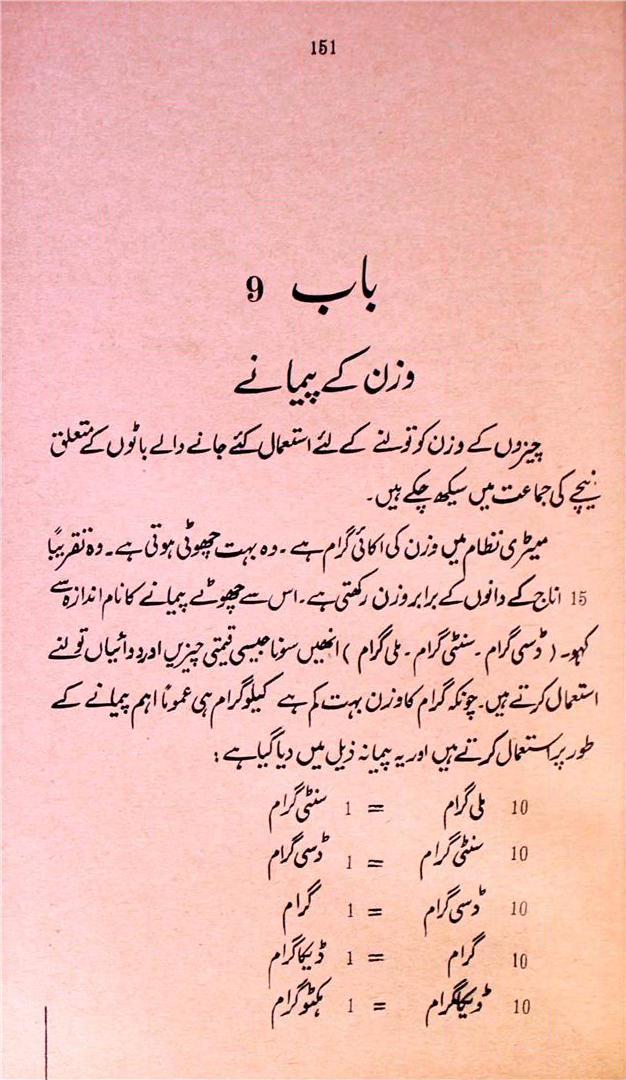 151
باب 9
وزن کے پیمانے
چیزوں کے وزن کو تولنے کے لئے استعمال کئے جانے والے باٹوں کے متعلق
نیچے کی جماعت میں سیکھ چکے ہیں۔
میٹری نظام میں وزن کی اکائی گرام ہے۔ وہ بہت چھوٹی ہوتی ہے۔ وہ تقریباً
15 اناج کے دانوں کے برابر وزن رکھتی ہے۔ اس سے چھوٹے پیمانے کا نام اندازہ سے
کہو۔ (ڈسی گرام۔ سنٹی گرام۔ ملی گرام) انھیں سونا جیسی قیمتی چیزیں اور دوائیاں تولنے
استعمال کرتے ہیں۔ چونکہ گرام کا وزن بہت کم ہے کیلوگرام ہی عموماً اہم پیمانے کے
طور پر استعمال کرتے ہیں اور یہ پیمانہ ذیل میں دیا گیا ہے :
10 ملی گرام = 1 سنٹی گرام
10 سنٹی گرام = 1 ڈسی گرام
10 ڈسی گرام = 1 گرام
10 گرام = 1 ڈیکاگرام
10 ڈیکاگرام = 1 ہکٹوگرام